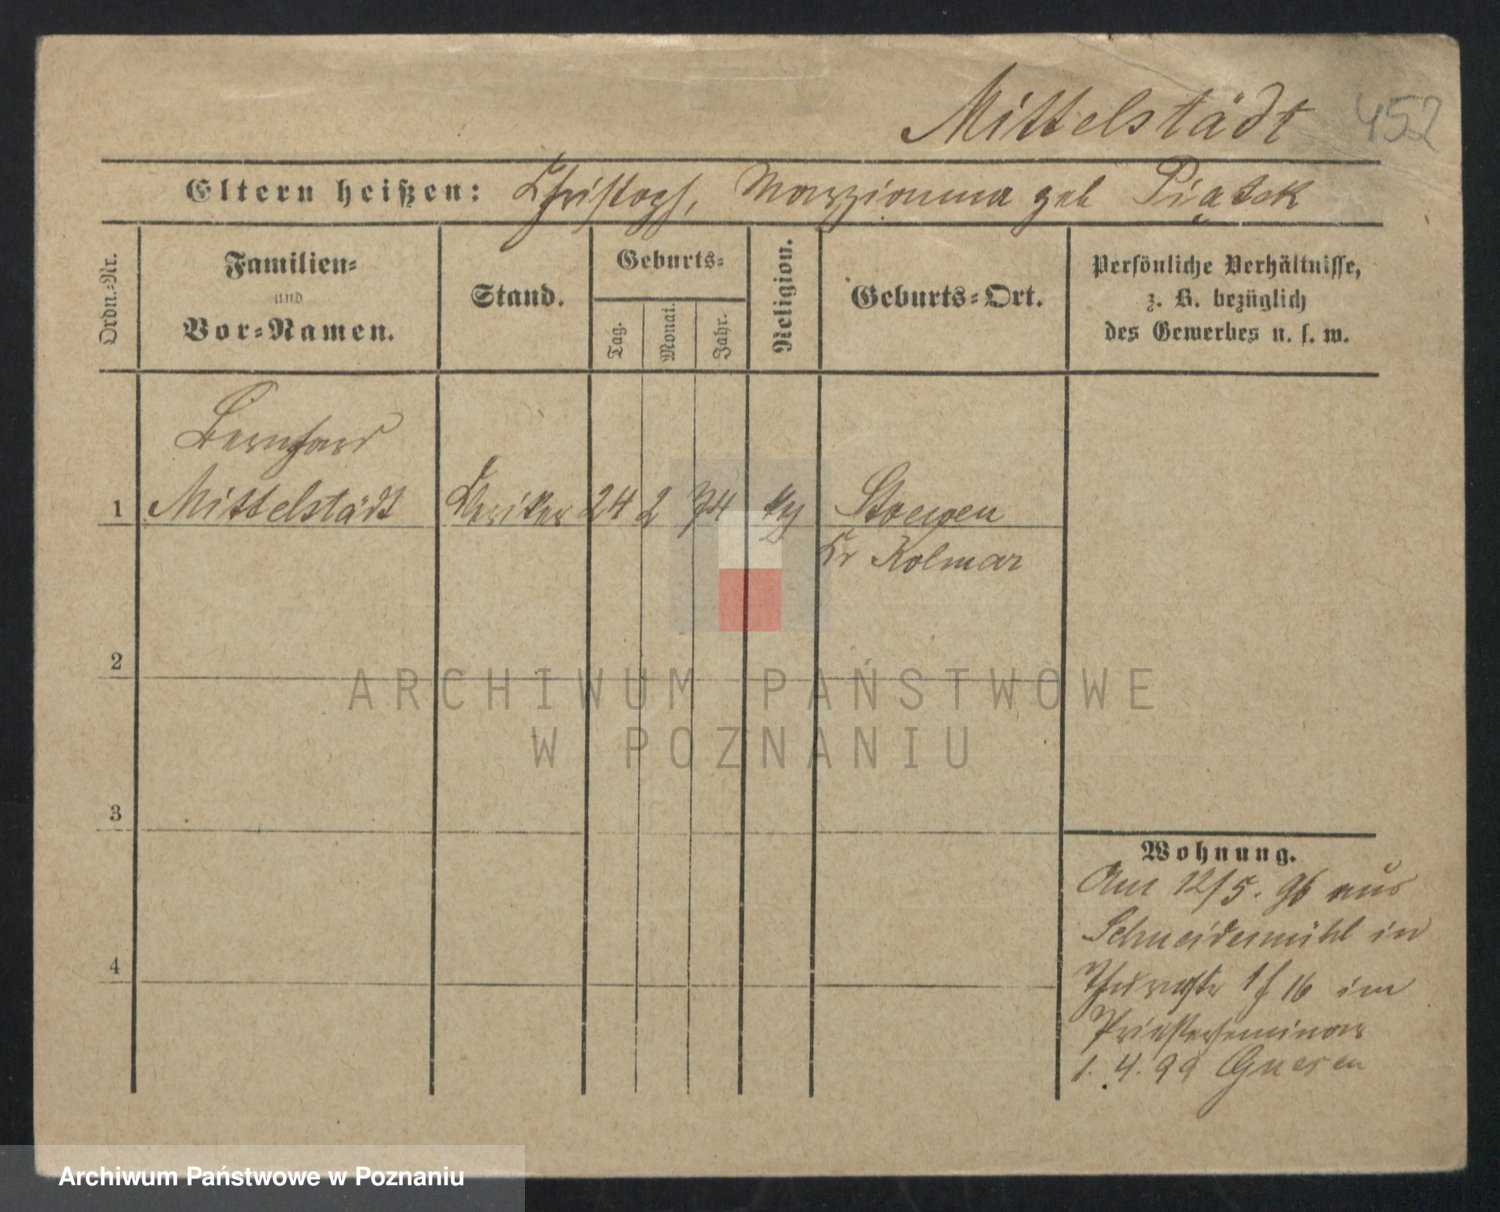 Mittelstädt 452
Eltern heißen: Christoph, Marzianna geb Piątek
Ordn.-Nr.
Familien-
und
Vor-Namen.
Stand.
Geburts-
Tag.
Monat.
Jahr.
Religion.
Geburts-Ort.
Persönliche Verhältnisse,
z. B. bezüglich
des Gewerbes u. s. w.
Bernhard
1 Mittelstädt Kleriker 24 2 74 Stoewen
Kr Kolmar
2
ARCHIWUM PAŃSTWOWE
W POZNANIU
3
Wohnung.
Am 12/5. 96 aus
Schneidemühl in
4
Thurmstr 16 im
Priesterseminar
1. 4. 99 Gnesen
Archiwum Państwowe w Poznaniu